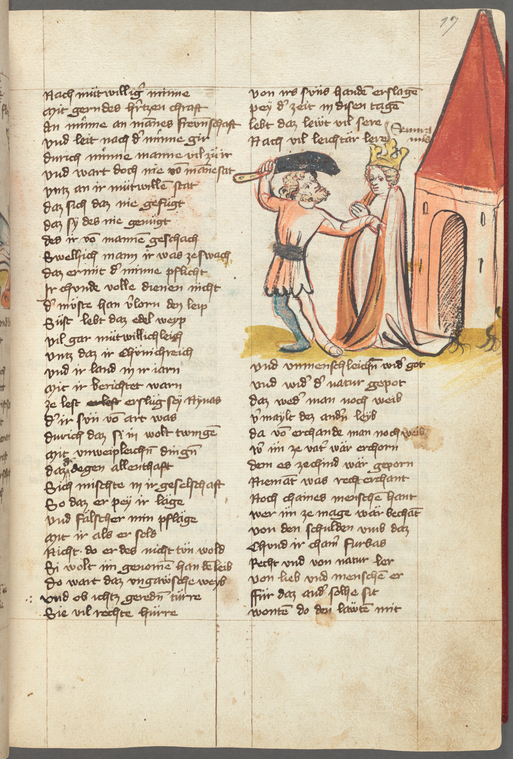 Nach mütwillig' minne
mit gerndes hertzen chraft
An minne an mānes
Vnd leit nach d' minne gir
durich minne manne vil zü ir
vnd wart doch nie vō māne sat
vntz an ir mütwille stat
daz sich daz nie gefügt
daz sy des nie genügt
des ir vō mannē geschach
Swelhich mann ir was ze swach
daz er mit d' minne pflicht
Ir chunde volle dienen nicht
d' müste han v'lorn den leip
Süst lebt daz edel weyp
vil gar mütwillichleich
vntz daz ir Chünichreich
vnd ir land in ir iarn
mit ir berichtet warn
ze lest erslug sey Nynas
d' ir sün vō art was
durich daz sy in wolt twingē
mit vnweipleichn dingn
daz d' degen allenthaft
Sich mischte in ir geselschaft
So daz er pey ir läge
vnd fälscher min pfläge
mit ir als er solt
Nicht do er des nicht tün wold
Si wolt im genomē han dē leib
Do wart daz vngäwische weyb
vnd es ichtz geredn türre
Sie vil rechte hürre
von irs süns handē erslagē
pey d' zeit in disen tagē
lebt daz lewt vil sere
Nach vil leichtär lere
vnd vnmenschleichn wid' got
vnd wid' d' natur gepot
daz wed' man noch weib
v'maylt dez andn leyb
da vō erchande man noch weib
w' im ze vat' wär erchorn
dem es ze chind wär geporn
Niemāt was recht erchant
Noch chaines mensche hant
wer im ze mage wär bechāt
von den schulden vmb daz
Chund ir chain fürbas
Recht vnd von natur ler
von lieb vnd menschen er
Für daz and' solhe sit
wontē do den läwtē mit